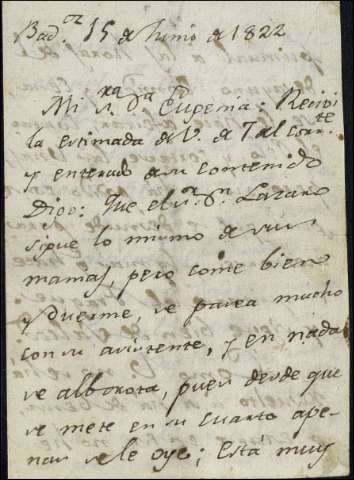 Bad.oz 15 de Junio de 1822
Mi s.ra D.a Eugenia: Recivi
la estimada de V. de 7 al corr.te
y enterado de su contenido
Digo: Que el s.r D.n Lazaro
sigue lo mismo de sus
mamas, pero come bien
y Duerme, se pasea mucho
con su asistente, y en nada
se alborota, pues desde que
se mete en su cuarto ape-
nas se le oye; Está muy